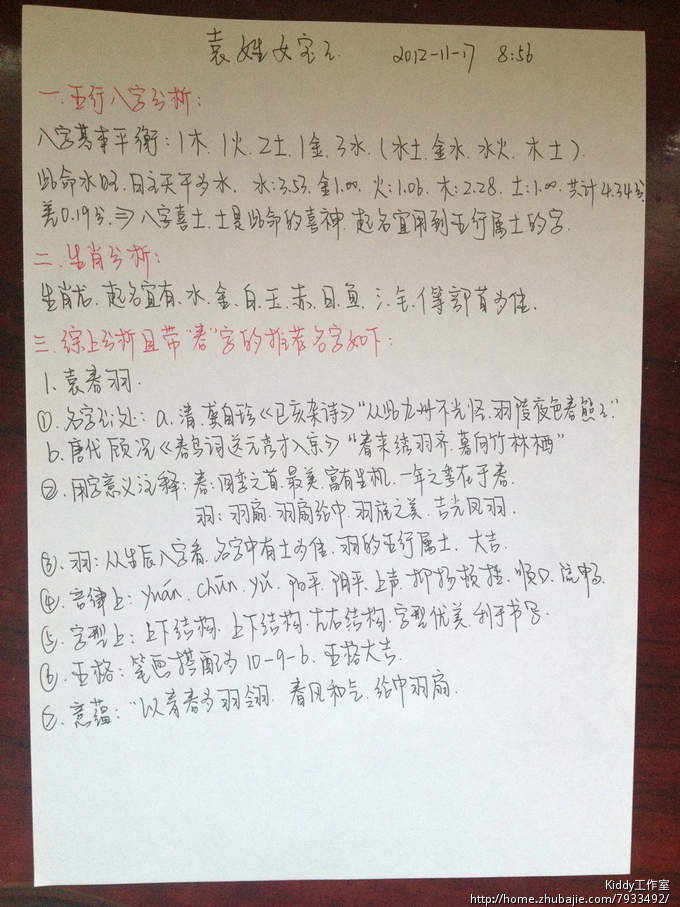 袁姓女宝宝 2012-11-17 8:56
一.五行八字分析:
八字基本平衡:1木.1火.2土.1金.3水.(水土.金水.水火.木土).
此命水旺.日主天干为水. 水:3.53.金1.00.火:1.06.木:2.28.土:1.00.共计4.34分
差0.19分⇒八字喜土.土是此命的喜神.起名宜用到五行属土的字.
二.生肖分析:
生肖龙.起名宜有.水.金.白.玉.赤.日.鱼.氵.钅.亻等部首为佳.
三.综上分析且带"春"字的推荐名字如下:
1.袁春羽.
①.名字出处:a.清.龚自珍《已亥杂诗》"从此九州不光怪.羽陵夜色春熙熙"
b.唐代 顾况《春鸟词送元秀才入京》"春来绣羽齐.暮向竹林栖"
②.用字意义注释:春:四季之首.最美.富有生机.一年之季在于春.
羽:羽扇.羽扇纶巾.羽旄之美.吉光凤羽.
③.羽:从生辰八字看.名字中有土为佳.羽的五行属土.大吉.
④.音律上:yuán.chūn.yǔ.阳平.阴平.上声.抑扬顿挫.顺口.流畅.
⑤.字型上:上下结构.上下结构.左右结构.字型优美.利于书写.
⑥.五格:笔画搭配为10-9-6.五格大吉.
⑦.意蕴:"以青春为羽翎.春风和气.纶巾羽扇.
Kiddy工作室
http://home.zhubajie.com/7933492/